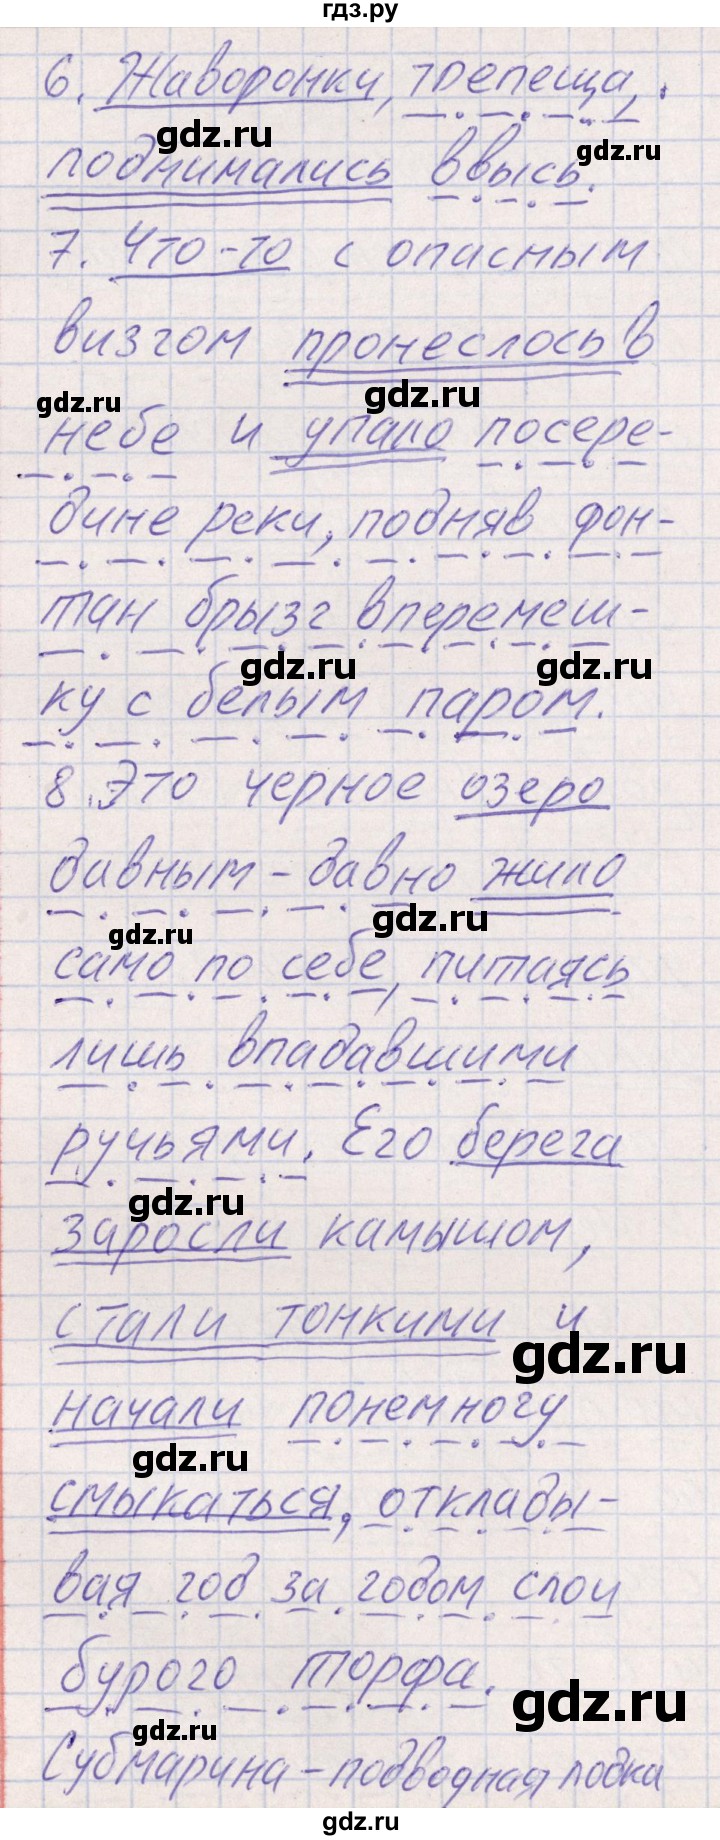 гдз.ру
6. Жаворонки, трепеща,
gdz.ru
gdz.ru
поднимались ввысь.
7. Что-то с опасным
визгом пронеслось в
gdz.ru
gdz.ru
небе и упало посере-
дине реки, подняв фон-
тан брызг вперемеш-
gdz.ru
gdz.ru
ку с белым паром.
8. Это черное озеро
давным-давно жило
gdz.ru
gdz.ru
само по себе, питаясь
лишь впадавшими
ручьями. Его берега
gdz.ru
заросли камышом,
стали тонкими и
gdz.ru
начали понемногу
gdz.ru
смыкаться, отклады-
вая год за годом слои
бурого торфа.
gdz.ru
gdz.ru
Субмарина - подводная лодка
gdz.ru